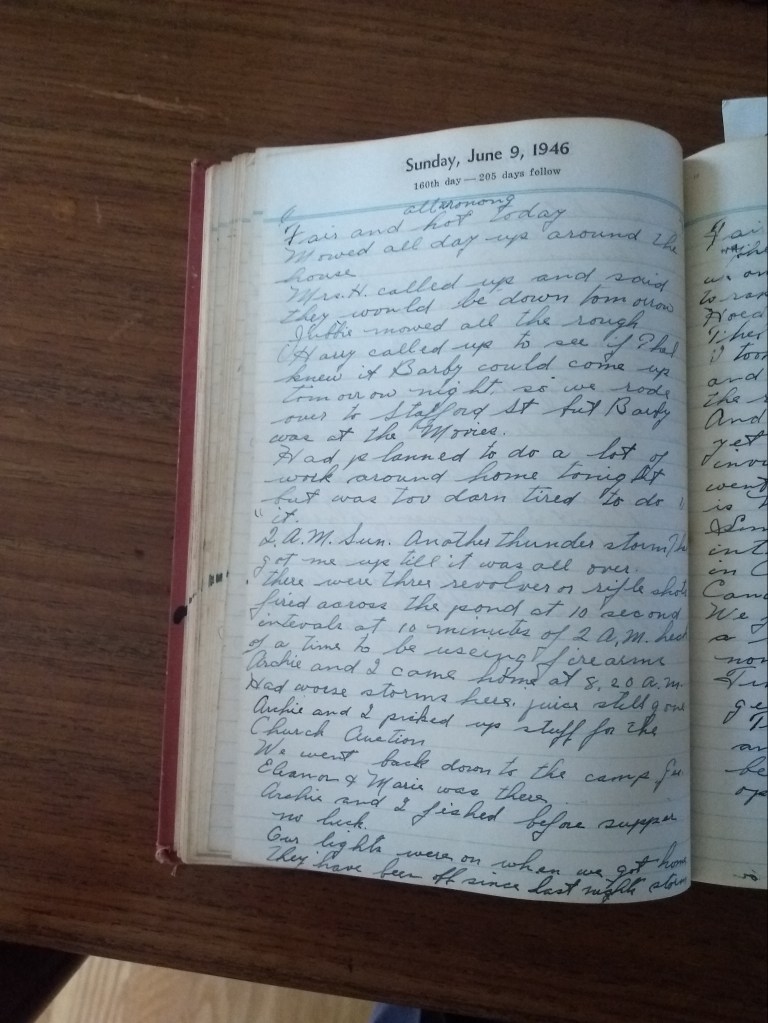 Sunday, June 9, 1946
160th day — 205 days follow
all wrong
Fair and hot today
Mowed all day up around the
house
Mrs. H. called up and said
they would be down tomorrow
mowed all the rough
Harry called up to see if Phil
knew if Barby could come up
tomorrow night, so we rode
over to Stafford St but Barby
was at the Movies.
Had planned to do a lot of
work around home tonight
but was too darn tired to do
it.
2 A.M. Sun. Another thunder storm
got me up till it was all over.
there were three revolver or rifle shots
fired across the pond at 10 second
intervals at 10 minutes of 2 A.M. heck
of a time to be useing firearms
Archie and I came home at 8,20 a.m.
Had worse storms here. juice still gone
Archie and I picked up stuff for the
Church Auction
We went back down to the camp
Eleanor & Marie was there
Archie and I fished before supper
no luck.
Our lights were on when we got home
They have been off since last nights storm
Fair
to
Hoed
I too
and
the
And
yet
went
is
int
in C
We
a
non
ge
an
be
op